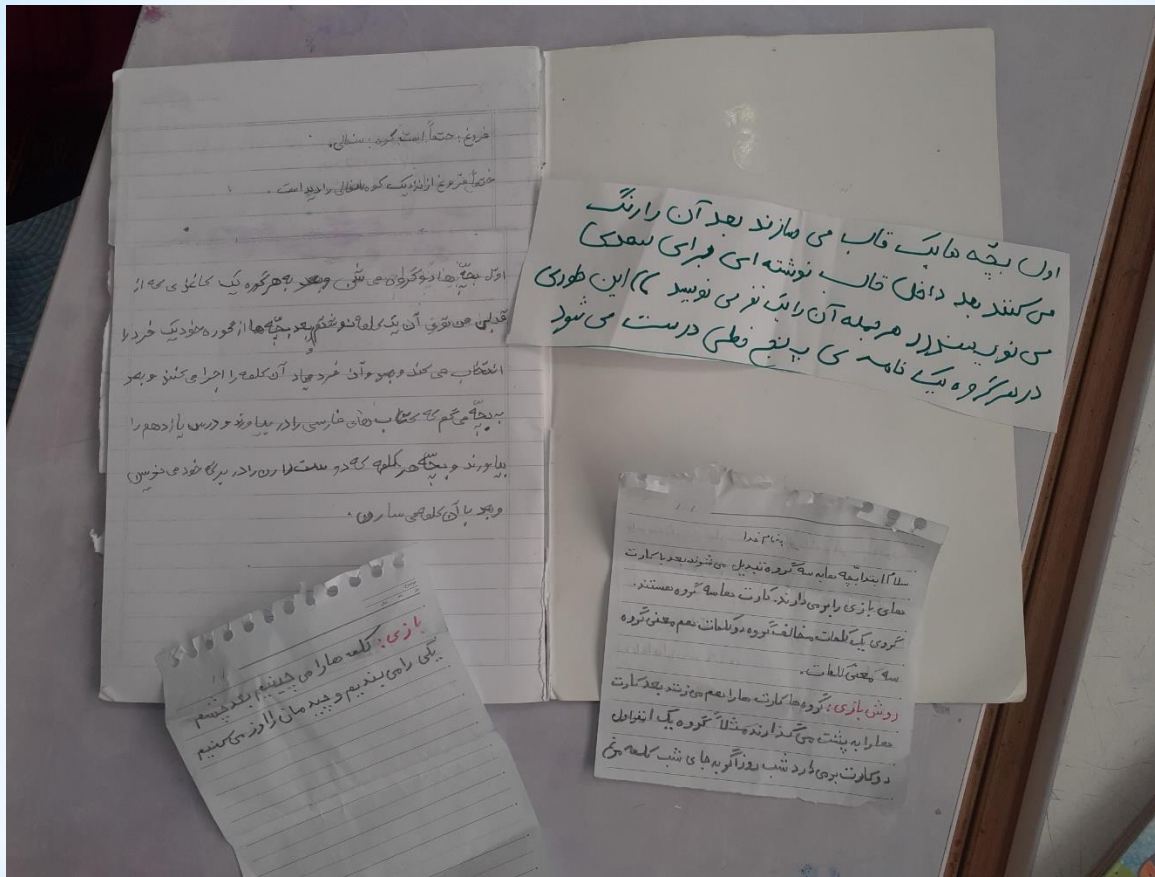 فروغ: حتماً است کوه سفالی.
حتماً فروغ از نزدیک کوه سفالی را دید است.
اول بچّه ها دو گروه می شن وبعد به هر گروه یک کاغذی که از
قدبلی من توی آن یک کلمه نوشتم بعد بچّه ها از گروه خود یک فرد را
انتخاب می کند و بعد آن فرد آن کلمه را اجرا می کنند و بعد
به بچّه می گم که کتاب های فارسی را در بیاورند و درس یازدهم را
بیاورند و بچّه هر کلمه که دوست دارن را در برگه خود می نویسن
وبعد با آن کلمه می سازن.
اول بچّه ها یک قالب می سازند بعد آن را رنگ
می کنند بعد داخل قالب نوشته ای برای بعدی
می نویسند (( هر جمله آن را یک نفر می نویسد )) این طوری
در هر گروه یک نامه ی پنج خطی درست می شود
بنام خدا
سلام ابتدا بچّه ها به سه گروه تبدیل می شوند بعد با کارت
های بازی را بر می دارند. کارت ها سه گروه هستند.
گروه یک کلمات مخالف گروه دو کلمات هم معنی گروه
سه معنی کلمات.
روش بازی: گروه ها کارت ها را بهم می زنند بعد کارت
ها را به پشت می گذارند مثلاً گروه یک انفر اول
دو کارت برمی دارد شب روز اگر به جای شب کلمه مرغ
بازی: کلمه ها را می چینیم بعد چشم
یکی را می بندیم و چیدمان را عوض می کنیم